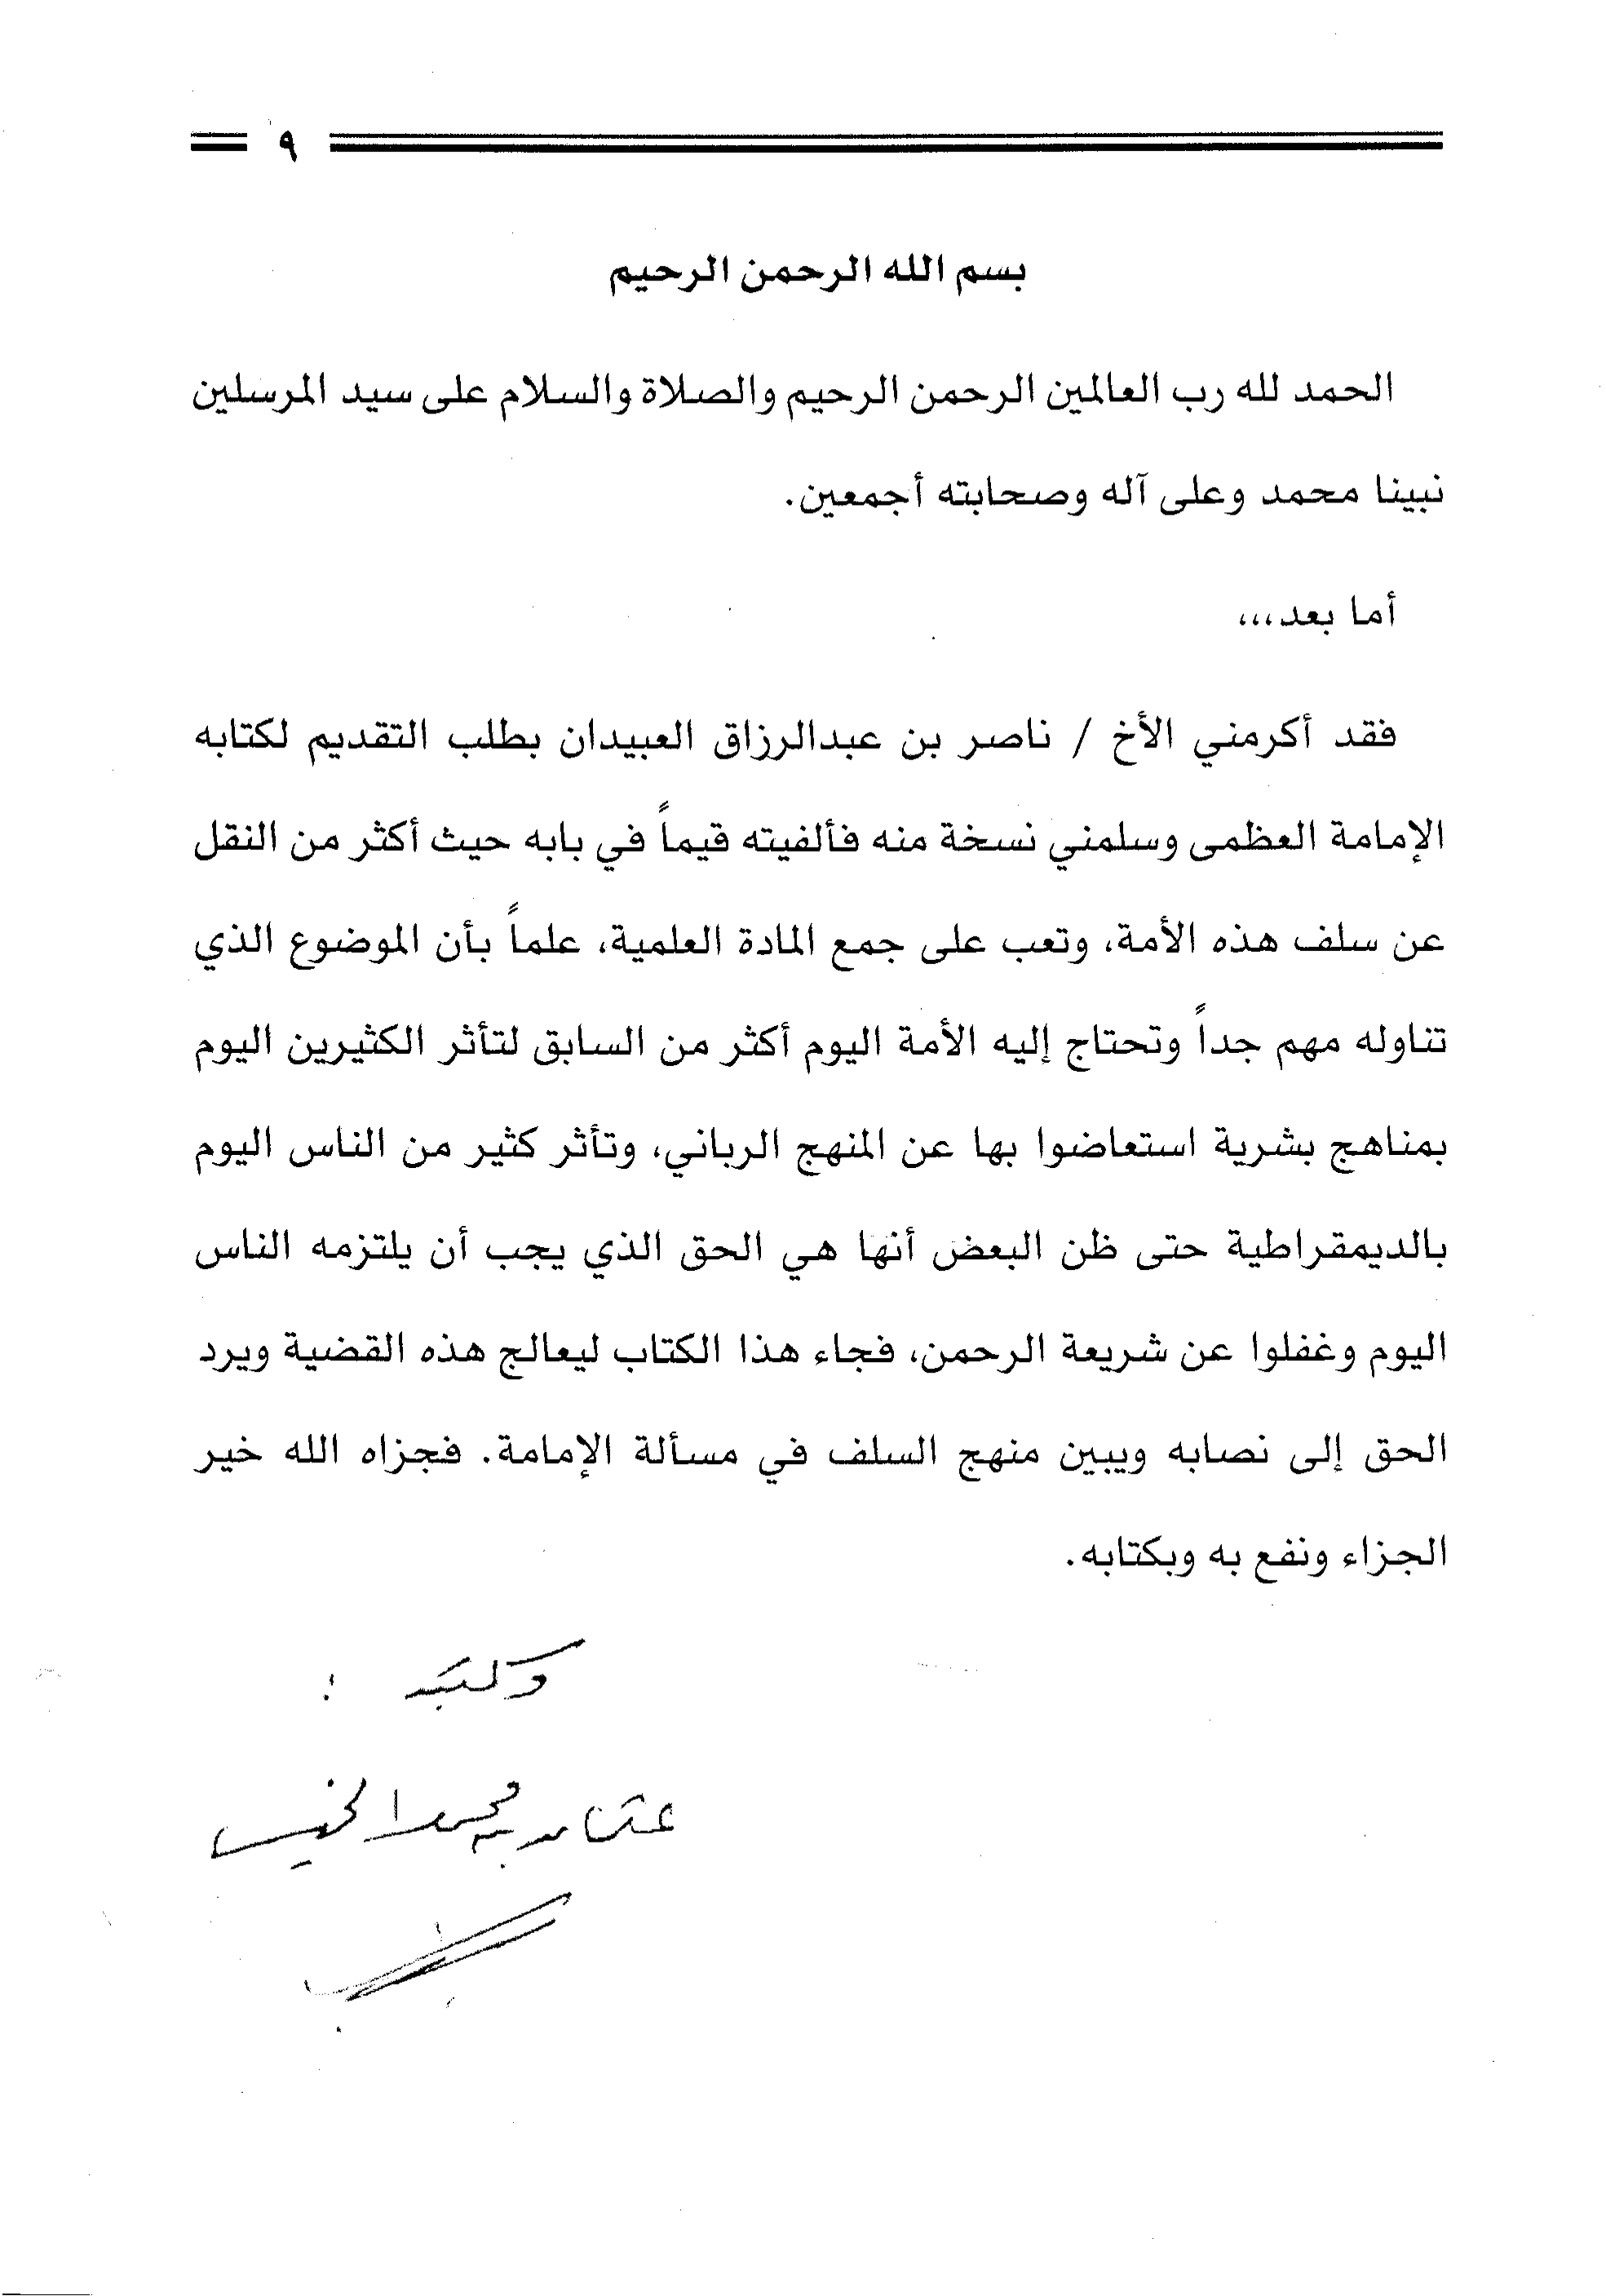 ٩
بسم الله الرحمن الرحيم
الحمد لله رب العالمين الرحمن الرحيم والصلاة والسلام على سيد المرسلين
نبينا محمد وعلى آله وصحابته أجمعين.
أما بعد،،،
فقد أكرمني الأخ / ناصر بن عبدالرزاق العبيدان بطلب التقديم لكتابه
الإمامة العظمى وسلمني نسخة منه فألفيته قيماً في بابه حيث أكثر من النقل
عن سلف هذه الأمة، وتعب على جمع المادة العلمية، علماً بأن الموضوع الذي
تناوله مهم جداً وتحتاج إليه الأمة اليوم أكثر من السابق لتأثر الكثيرين اليوم
بمناهج بشرية استعاضوا بها عن المنهج الرباني، وتأثر كثير من الناس اليوم
بالديمقراطية حتى ظن البعض أنها هي الحق الذي يجب أن يلتزمه الناس
اليوم وغفلوا عن شريعة الرحمن، فجاء هذا الكتاب ليعالج هذه القضية ويرد
الحق إلى نصابه ويبين منهج السلف في مسألة الإمامة. فجزاه الله خير
الجزاء ونفع به وبكتابه.
وكتبه :
عثمان بن محمد الخميس